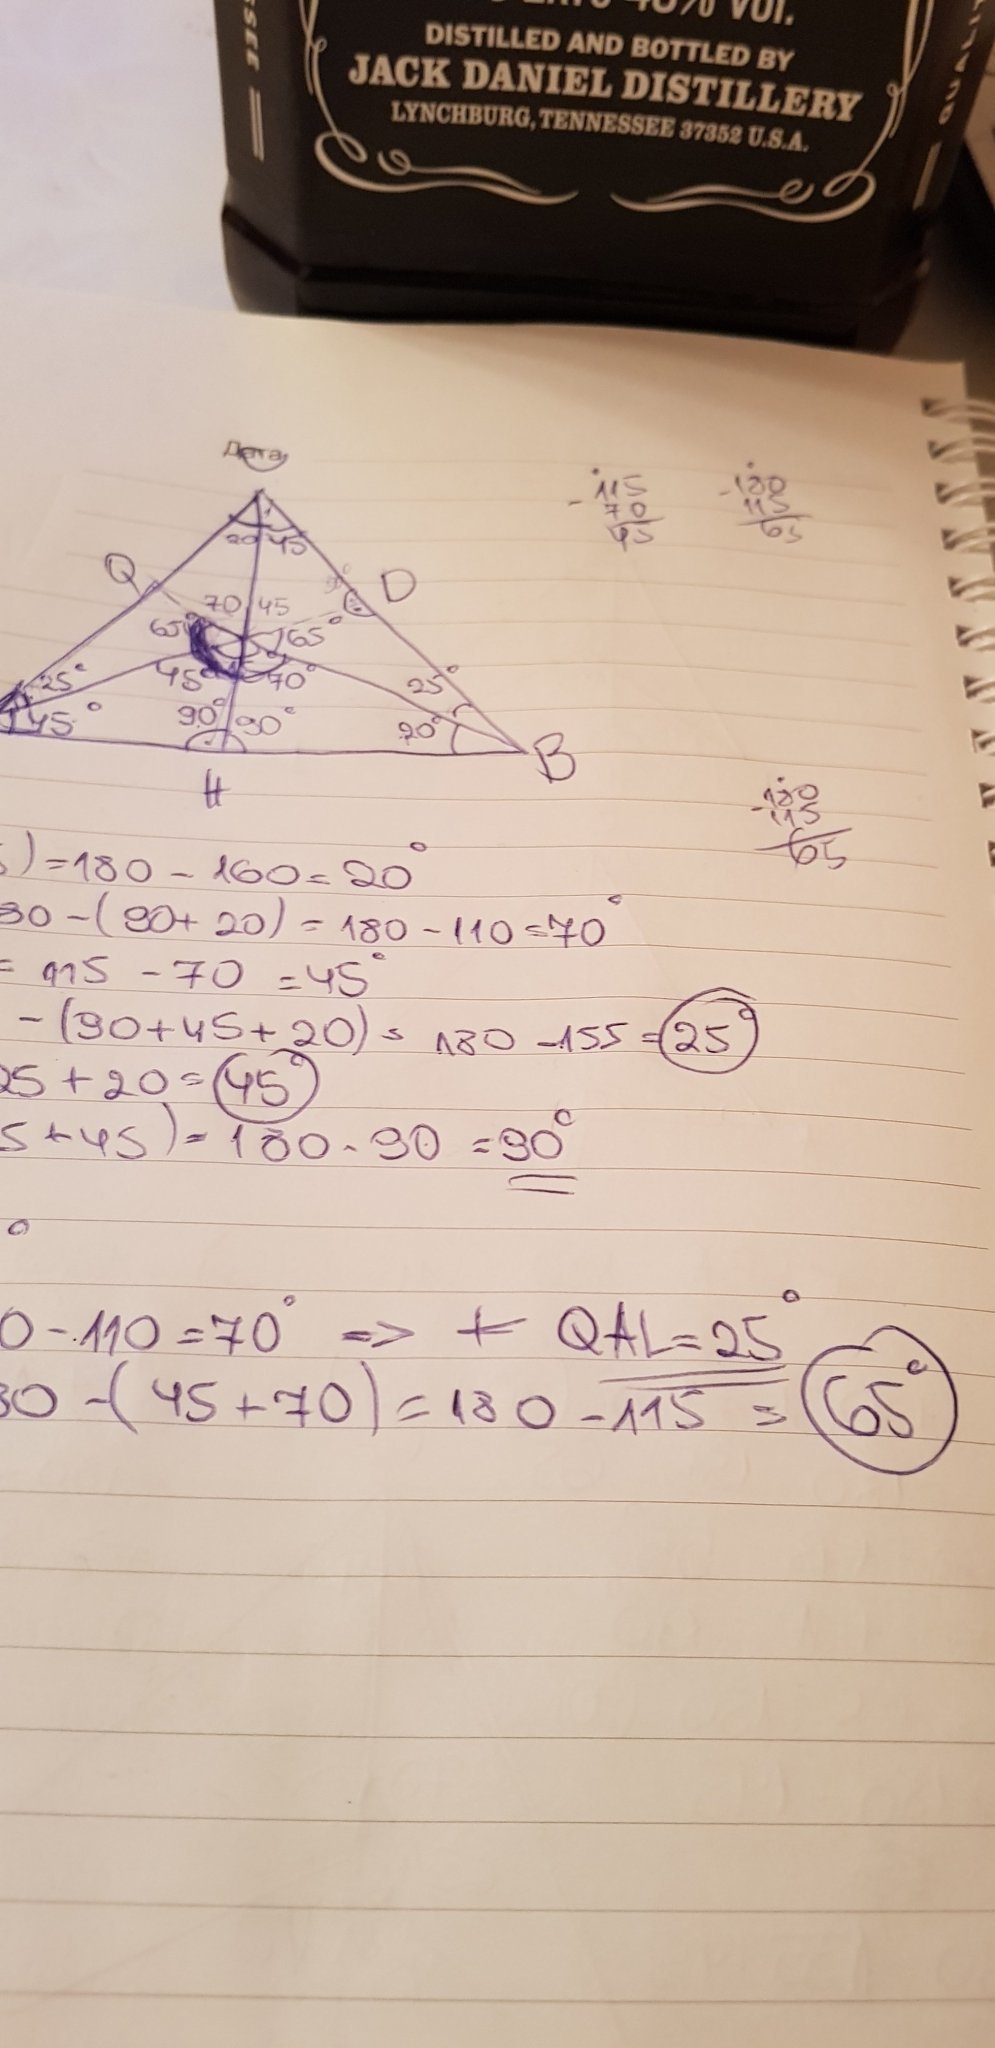 DISTILLED AND BOTTLED BY
JACK DANIEL DISTILLERY
LYNCHBURG, TENNESSEE 37352 U.S.A.
Дата
115
- 70
45
180
- 115
65
20 45
Q
D
70 45
65° 65°
45° 70°
25° 25°
45° 90° 90° 20°
H
B
180
- 115
65
) = 180 - 160 = 20°
80 - (90 + 20) = 180 - 110 = 70°
= 115 - 70 = 45°
- (90 + 45 + 20) = 180 - 155 = 25°
25 + 20 = 45°
5 + 45) = 180 - 90 = 90°
°
0 - 110 = 70° => ∢ QAL = 25°
80 - (45 + 70) = 180 - 115 = 65°